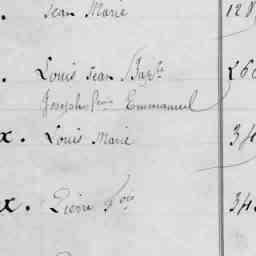 . Jean Marie 128
. Louis Jean Bapte 260
Joseph Pierre Emmanuel
x. Louis Marie 34
x. Pierre Fois 34